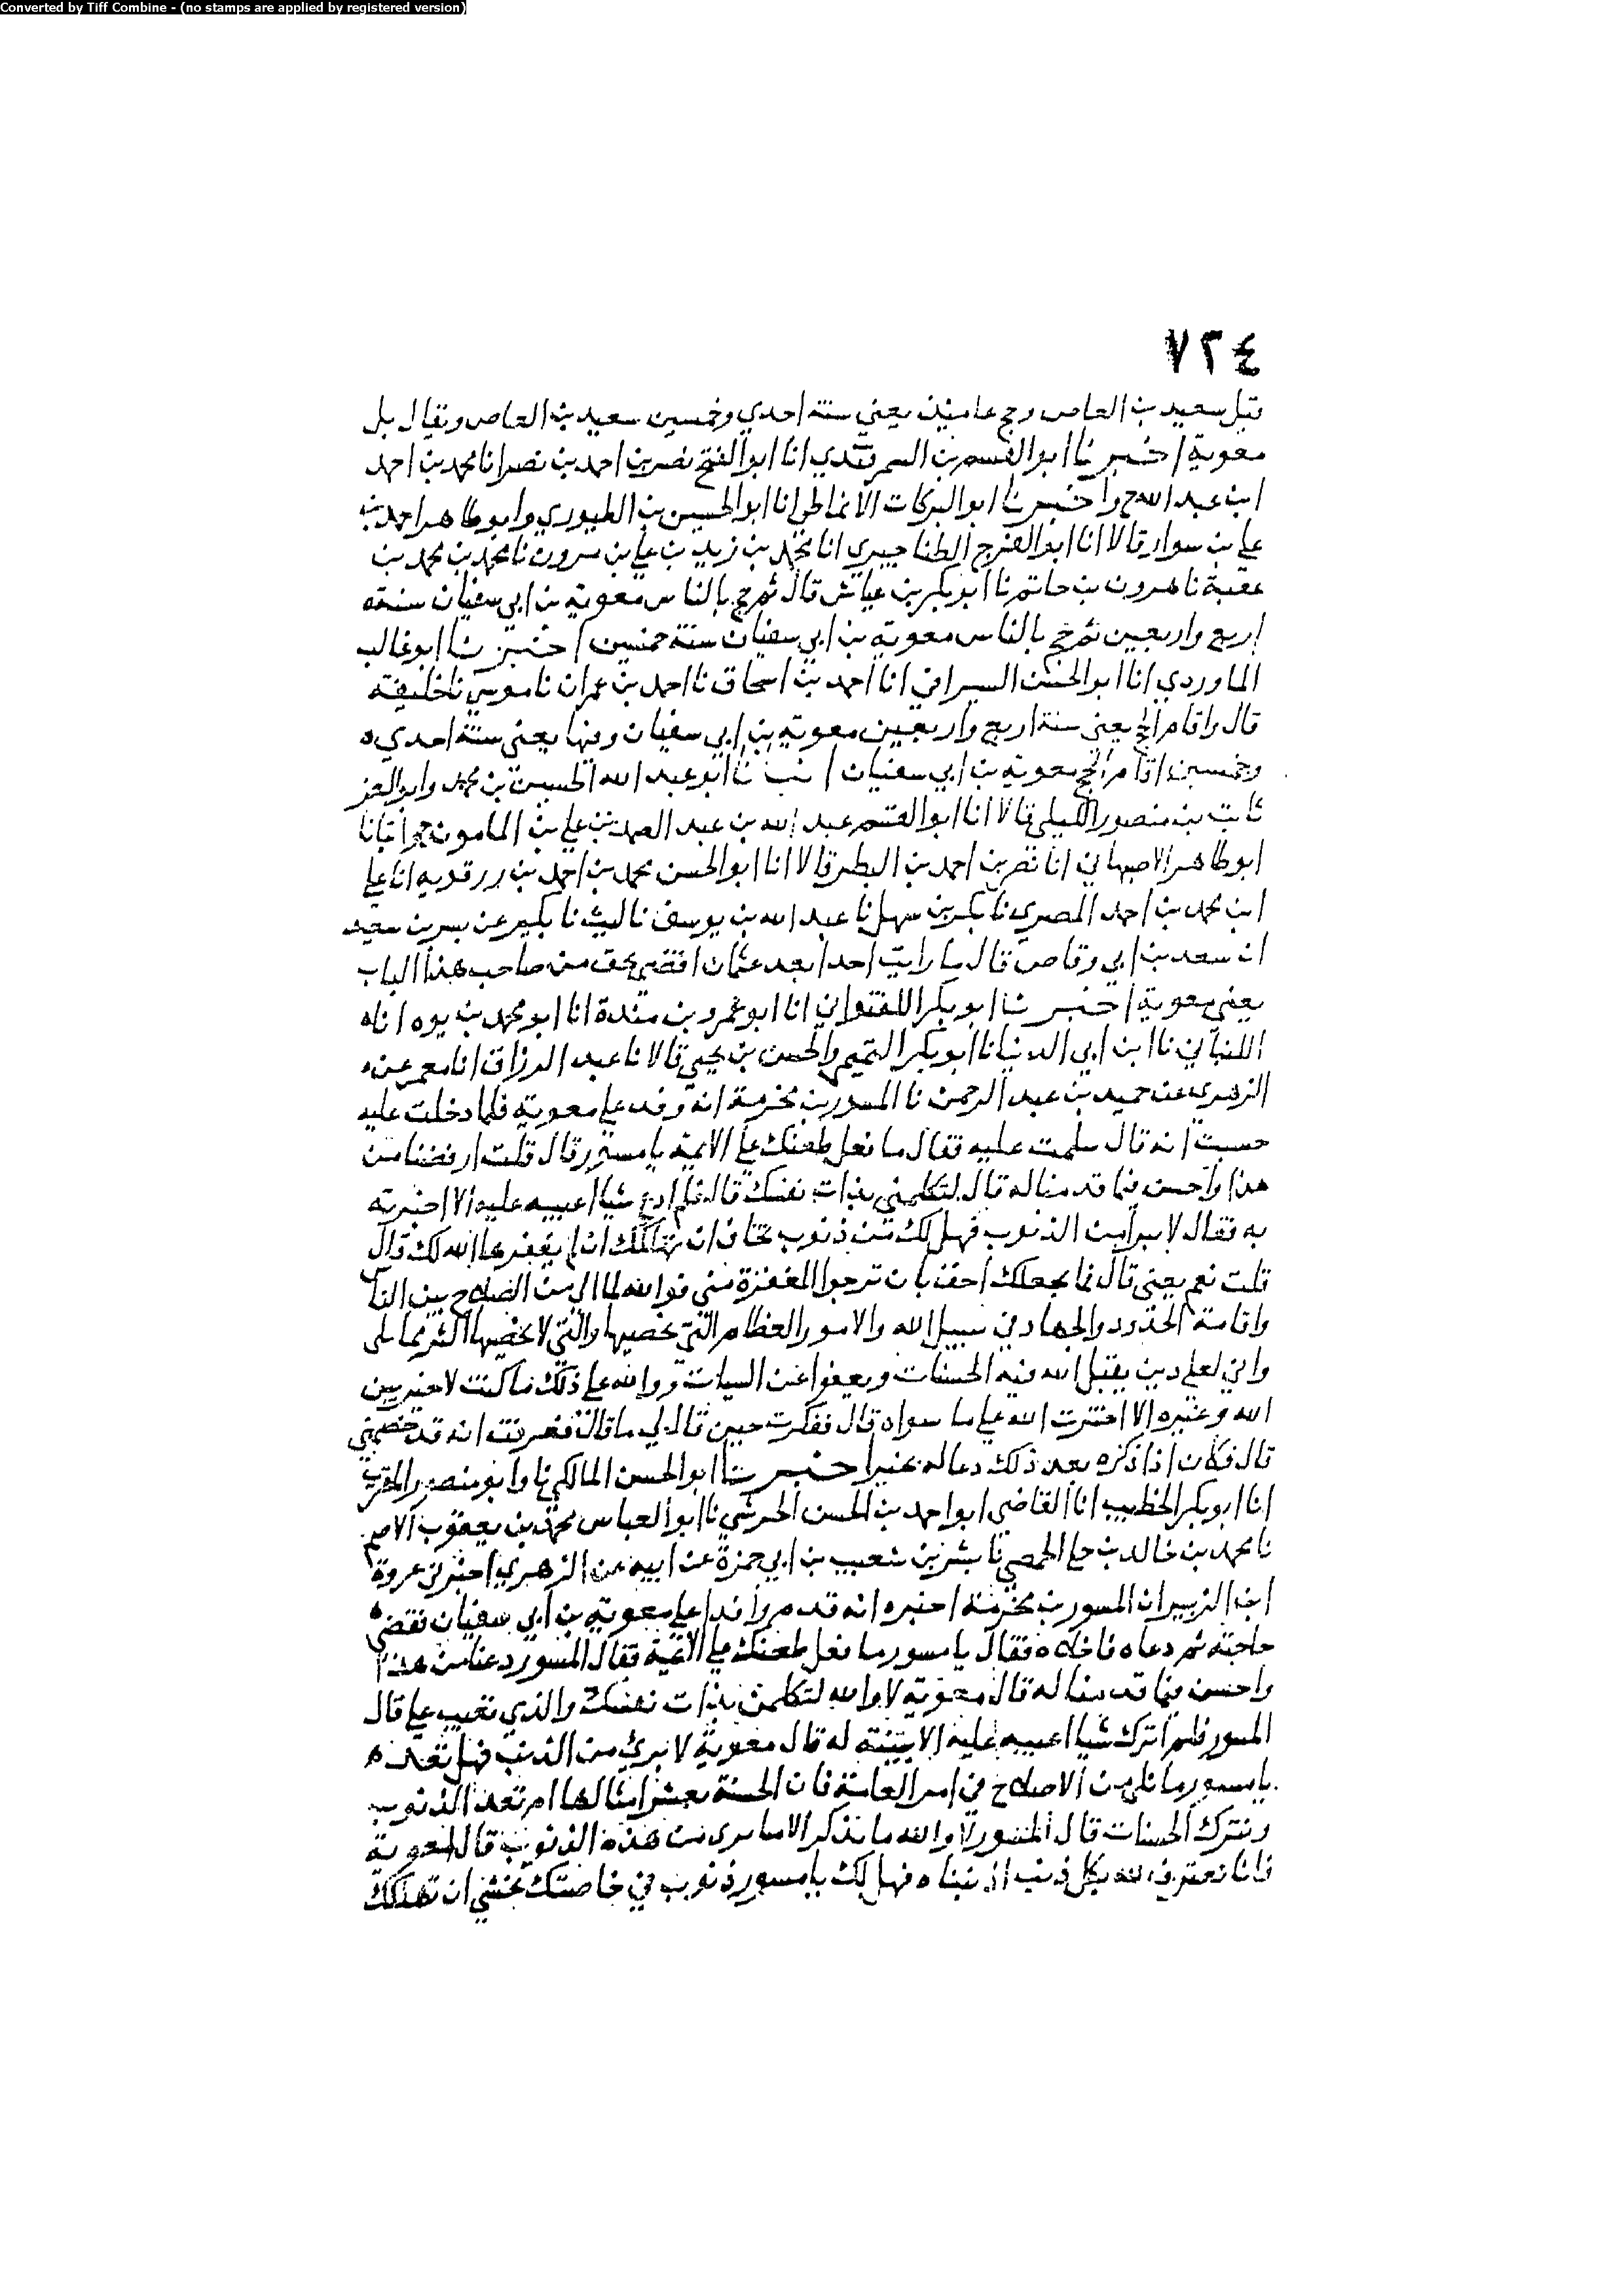 Converted by Tiff Combine - (no stamps are applied by registered version)
٧٢٤
قبل سعيد بن العاص وحج عامئذ يعني سنة احدي وخمسين سعيد بن العاص ويقال بل
معوية اخبرنا ابو القسم بن السمرقندي انا ابو الفتح نصر بن احمد بن نصر انا محمد بن احمد
ابن عبد الله ح واخبرنا ابو البركات الانماطي انا ابو الحسين بن الطيوري وابو طاهر احمد بن
علي بن سوار قالا انا ابو الفرج الطناجيري انا محمد بن زيد بن علي بن مروان نا محمد بن محمد بن
عقبة نا هرون بن حاتم نا ابو بكر بن عياش قال ثم حج بالناس معوية بن ابي سفيان سنة
اربع واربعين ثم حج بالناس معوية بن ابي سفيان سنة خمسين اخبرنا ابو غالب
الماوردي انا ابو الحسن السيرافي انا احمد بن اسحاق نا احمد بن عمران نا موسي نا خليفة
قال واقام الحج يعني سنة اربع واربعين معوية بن ابي سفيان وفيها يعني سنة احدي
وخمسين اقام الحج معوية بن ابي سفيان انبانا ابو عبد الله الحسين بن محمد وابو العز
ثابت بن منصور الكيلي قالا انا ابو القسم عبد الله بن عبد الصمد بن علي بن المامون ح وانبانا
ابو طاهر الاصبهاني انا نصر بن احمد بن البطر قالا انا ابو الحسن محمد بن احمد بن رزقويه انا علي
ابن محمد بن احمد المصري نا بكر بن سهل نا عبد الله بن يوسف نا ليث نا بكير عن بسر بن سعيد
ان سعد بن ابي وقاص قال ما رايت احدا بعد عثمان اقضي بحق من صاحب هذا الباب
يعني معوية اخبرنا ابو بكر اللفتواني انا ابو عمرو بن مندة انا ابو محمد بن يوه انا
اللنباني نا ابن ابي الدنيا نا ابو بكر التميمي والحسن بن يحيي قالا نا عبد الرزاق انا معمر عن
الزهري عن حميد بن عبد الرحمن نا المسور بن مخرمة انه وفد علي معوية فلما دخلت عليه
حسبت انه قال سلمت عليه فقال ما فعل طعنك علي الائمة يا مسور قال قلت ارفضنا من
هذا واحسن فيما قدمنا له قال لتكلمني بذات نفسك قال فلم ادع شيا اعيبه عليه الا اخبرته
به فقال لا ابرا من الذنوب فهل لك من ذنوب تخاف ان تهلكك ان لم يغفرها الله لك قال
قلت نعم يعني قال فما يجعلك احق بان ترجوا المغفرة مني فوالله لما الي من الصلاح بين الناس
واقامة الحدود والجهاد في سبيل الله والامور العظام التي تحصيها والتي لا تحصيها اكثر مما تلي
واني لعلي دين يقبل الله فيه الحسنات ويعفوا عن السيات ووالله علي ذلك ما كنت لاخير بين
الله وغيره الا اخترت الله علي ما سواه قال ففكرت حين قال لي ما قال فعرفت انه قد خصمني
قال فكان اذا ذكره بعد ذلك دعا له بخير اخبرنا ابو الحسن المالكي نا وابو منصور المقري
انا ابو بكر الخطيب انا القاضي ابو احمد بن الحسن الحرشي نا ابو العباس محمد بن يعقوب الاصم
نا محمد بن خالد بن خلي الحمصي نا بشر بن شعيب بن ابي حمزة عن ابيه عن الزهري اخبرني عروة
ابن الزبير ان المسور بن مخرمة اخبره انه قدم وافدا علي معوية بن ابي سفيان فقضي
حاجته ثم دعاه فاخلاه فقال يا مسور ما فعل طعنك علي الائمة فقال المسور دعنا من هذا
واحسن فيما قدمنا له قال معوية لا والله لتكلمن بذات نفسك والذي تعيب علي قال
المسور فلم اترك شيا اعيبه عليه الا بينته له قال معوية لا بري من الذنب فهل تعد
يا مسور ما نلي من الاصلاح في امر العامة فان الحسنة بعشر امثالها ام تعد الذنوب
وتترك الحسنات قال المسور لا والله ما نذكر الا ما نري من هذه الذنوب قال معوية
فانا نعترف لله بكل ذنب اذنبناه فهل لك يا مسور ذنوب في خاصتك تخشي ان تهلكك